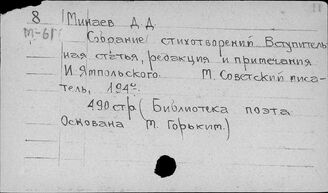 8 Минаев Д. Д.
М-61
Собрание стихотворений Вступитель-
ная статья, редакция и примечания
И. Ямпольского. М. Советский писа-
тель,
490 стр (Библиотека поэта
Основана М. Горьким.)